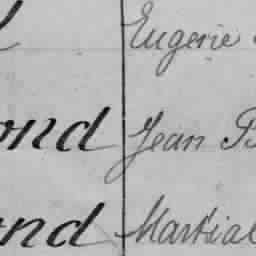 Eugenie
ond Jean B
ond Martial